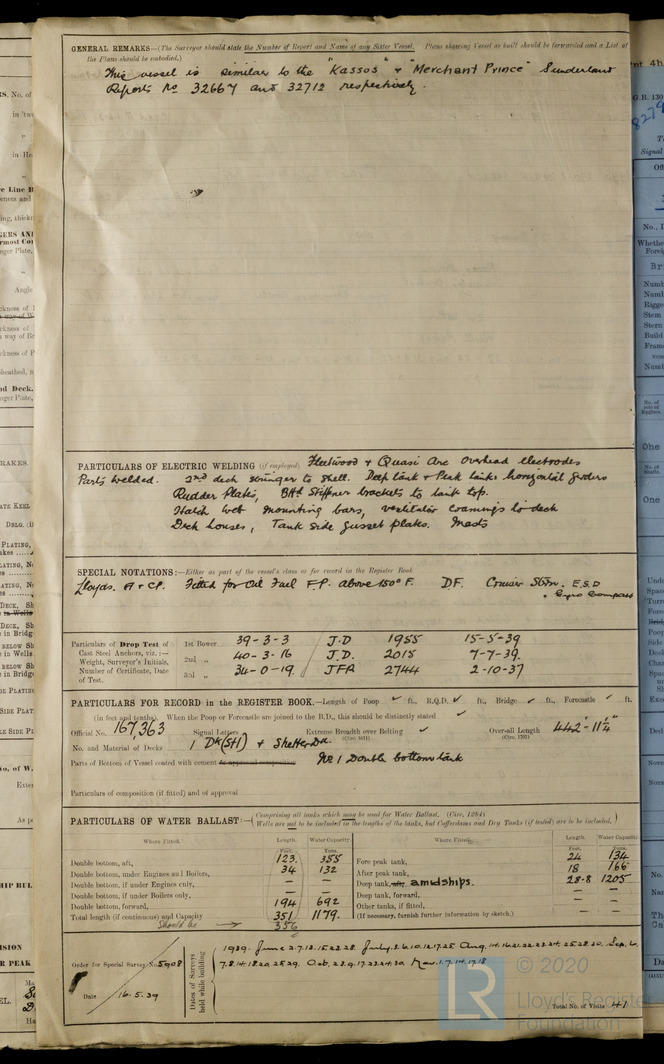 GENERAL REMARKS—(The Surveyor should state the Number of Report and Name of any Sister Vessel. Plans showing Vessel as built should be forwarded and a List of
the Plans should be embodied.)
This vessel is similar to the "Kassos" & "Merchant Prince" Sunderland
Reports No 32667 and 32712 respectively.
PARTICULARS OF ELECTRIC WELDING (if employed) Fleetwood & Quasi Arc overhead electrodes
Parts welded. 2nd deck stringer to shell. Deep tank & Peak tanks horizontal girders
Rudder Plates, BHd Stiffner brackets to tank top.
Hatch web mounting bars, ventilator coamings to deck
Deck houses, Tank side gusset plates. Masts
SPECIAL NOTATIONS:—Either as part of the vessel's class or for record in the Register Book
Lloyds. A & CP. Fitted for Oil Fuel F.P. above 150° F. D.F. Cruiser Stern. E.S.D
& Gyro Compass
Particulars of Drop Test of 1st Bower 39-3-3 J.D 1955 15-5-39
Cast Steel Anchors, viz.:— 2nd „ 40-3-16 J.D. 2015 7-7-39.
Weight, Surveyor's Initials,
Number of Certificate, Date 3rd „ 34-0-19. JFA 2744 2-10-37
of Test.
PARTICULARS FOR RECORD in the REGISTER BOOK.—Length of Poop ✓ ft., R.Q.D. ✓ ft., Bridge ✓ ft., Forecastle ✓ ft.
(in feet and tenths). When the Poop or Forecastle are joined to the B.D., this should be distinctly stated ✓
Official No. 167,363 Signal Letters Extreme Breadth over Belting ✓ Over-all Length 442'-11¼"
(Circ. 1611) (Circ. 1703)
No. and Material of Decks 1 Dk (Stl) & Shelter Dk.
Parts of Bottom of Vessel coated with cement or approved composition No 1 Double bottom tank
Particulars of composition (if fitted) and of approval
PARTICULARS OF WATER BALLAST:—(Comprising all tanks which may be used for Water Ballast. (Circ. 1284)
Wells are not to be included in the lengths of the tanks, but Cofferdams and Dry Tanks (if tested) are to be included.)
Where Fitted. Length. Water Capacity. Where Fitted. Length. Water Capacity.
Feet. Tons. Feet. Tons.
Double bottom, aft, 123. 355 Fore peak tank, 24 134
Double bottom, under Engines and Boilers, 34 132 After peak tank, 18 166
Double bottom, if under Engines only, — — Deep tank, aft, amidships. 28-8 1205
Double bottom, if under Boilers only, — — Deep tank, forward, — —
Double bottom, forward, 194 692 Other tanks, if fitted, — —
Total length (if continuous) and Capacity 351 1179. (If necessary, furnish further information by sketch.)
Should be → 356
Order for Special Survey No. 5908
Date 16.5.39
Dates of Surveys held while building
1939. June 2.7.12.15.22.28. July
Total No. of Visits 41
© 2020
Lloyd's Register
Foundation